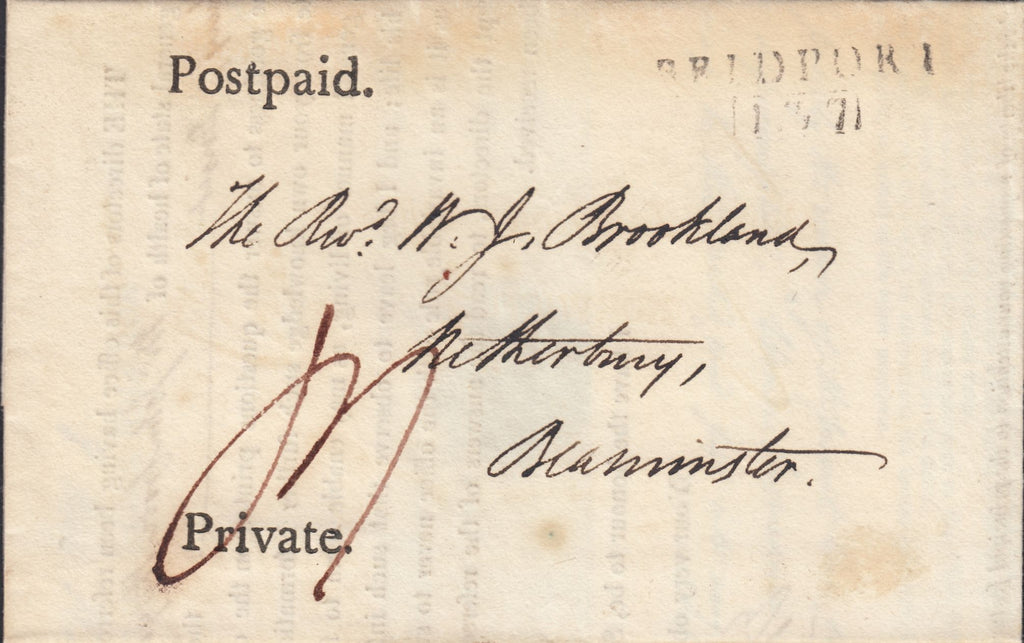 Postpaid.
BRIDPORT
The Revd. W. J. Brookland,
Netherbury,
Beaminster.
Private.